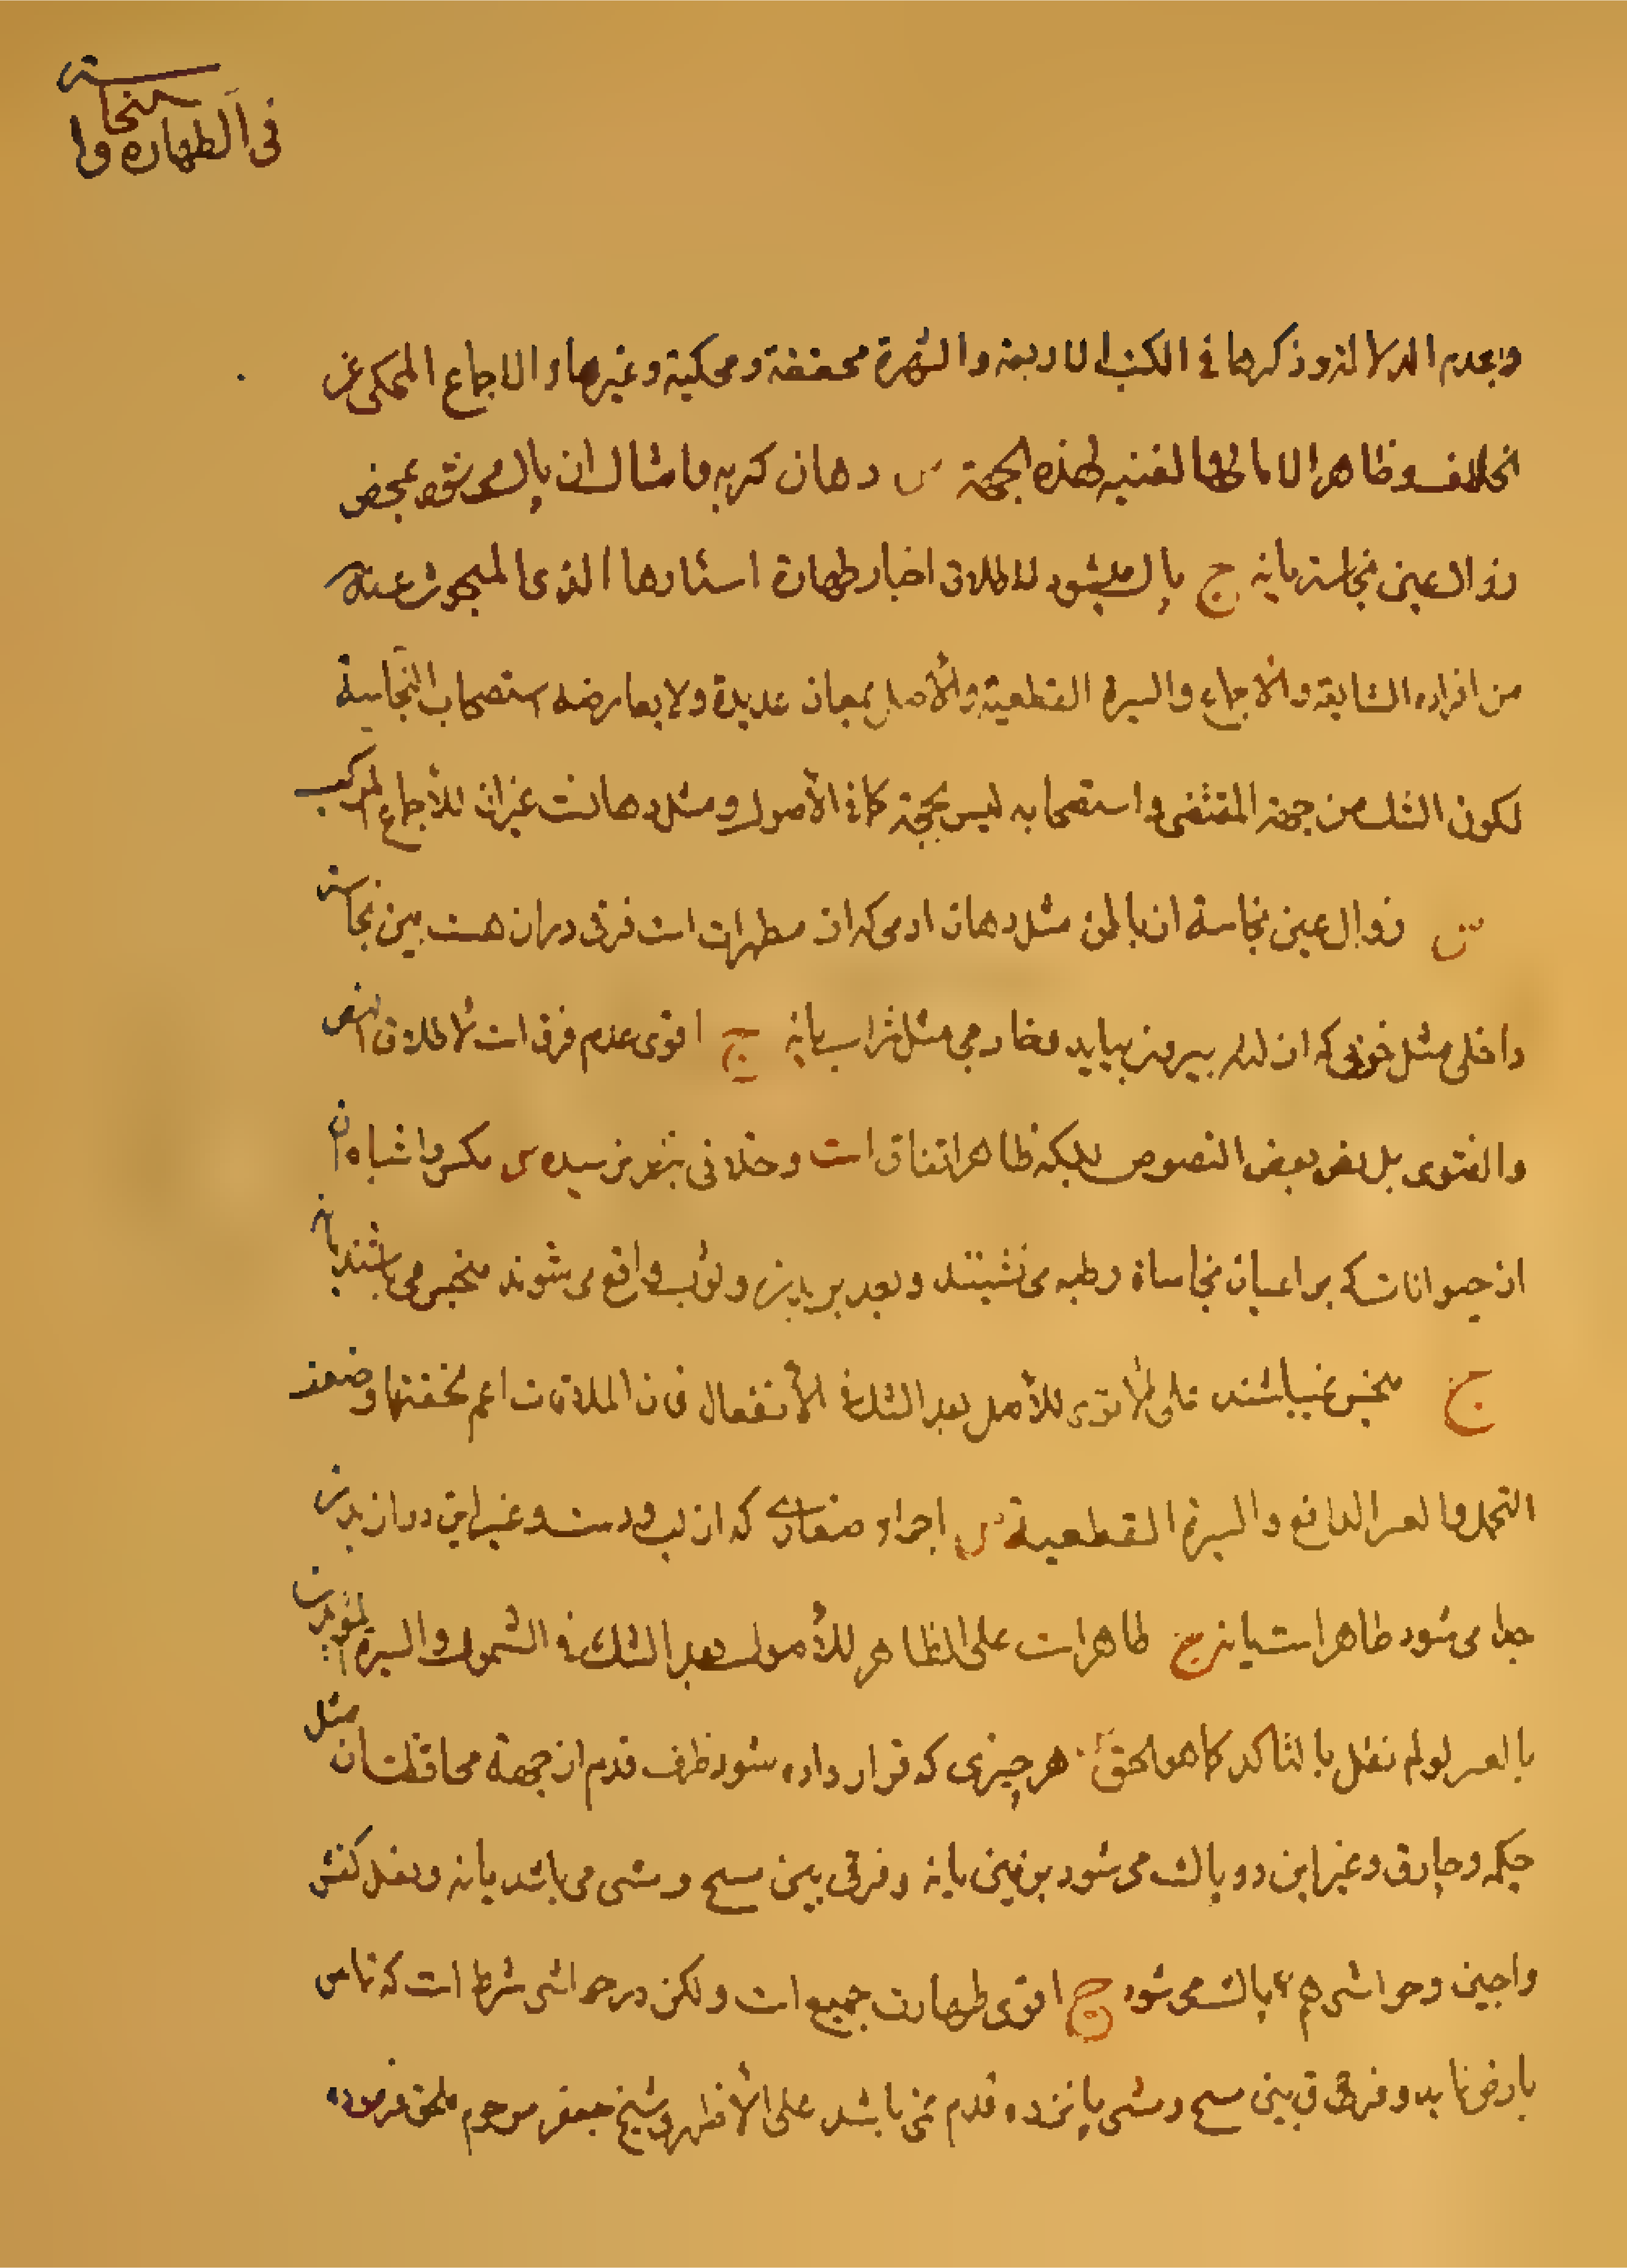 فی الطهارة والنجاسة
وبعدم الدلالة وذكرها فى الكتب الاربعة والشهرة محققة ومحكية وغيرها والاجماع المحكى عن
الخلاف وظاهر الامالى والغنيه لهذه الجهة س دهان كربه وامثال ان پاك میشود بمحض
زوال عین نجاست یا نه ج پاك میشود لاطلاق اخبار طهارة اسئارها الذى المبحوث عنه
من افراده الشايعة والاجماع والسيرة القطعية والأصل بمعان عديدة ولا يعارضه استصحاب النجاسة
لكون الشك من جهة المقتضى واستصحابه ليس بحجة كما فى الأصول ومثل دهانست غیر ان للأجماع المركب
س زوال عین نجاسة از باطن مثل دهان ادمی که از مطهرات است فرقی در ان هست بین نجاست
داخلی مثل خونی که از لثه بیرون بیاید و خارجی مثل شراب یا نه ج اقوی عدم فرق است لأطلاق النص
والفتوى بل نص بعض النصوص بلکه ظاهر اتفاق است و خلافی بنظر نرسیده س مکس و اشباه ان
از حیوانات که بر اعیان نجاساة رطبه می نشینند و بعد بر بدن و ثوب واقع می شوند منجس می باشند یا نه
ج منجس نمیباشند على الأقوى للأصل بعد الشك فى الأنفعال فان الملاقات اعم لخفتها وضعف
التحمل والعسر الدافع والسيرة القطعية س اجزاء صغاری که از لب و دست و غیر این دو از بدن
جدا می شود طاهر است یا نه ج طاهر است على الظاهر للأصول بعد الشك فى الشمول والسيرة المؤيدين
بالعسر لو لم نقل بالتاكد كما هو الحق س هر چیزی که قرار داده شود ظرف قدم از جهة محافظت ان مثل
چکمه و چارق و غیر این دو پاك می شود بزمین یا نه و فرقی بین مسح و مشی می باشد یا نه و نعل کفش
واجین و حواشی هم پاك می شود ج اقوی طهارت جمیع است و لکن در حواشی شرط است که تماس
بارض نماید و فرقی بین مسح و مشی پانزده قدم نمی باشد على الأظهر وشیخ جعفر مرحوم ملحق فرموده